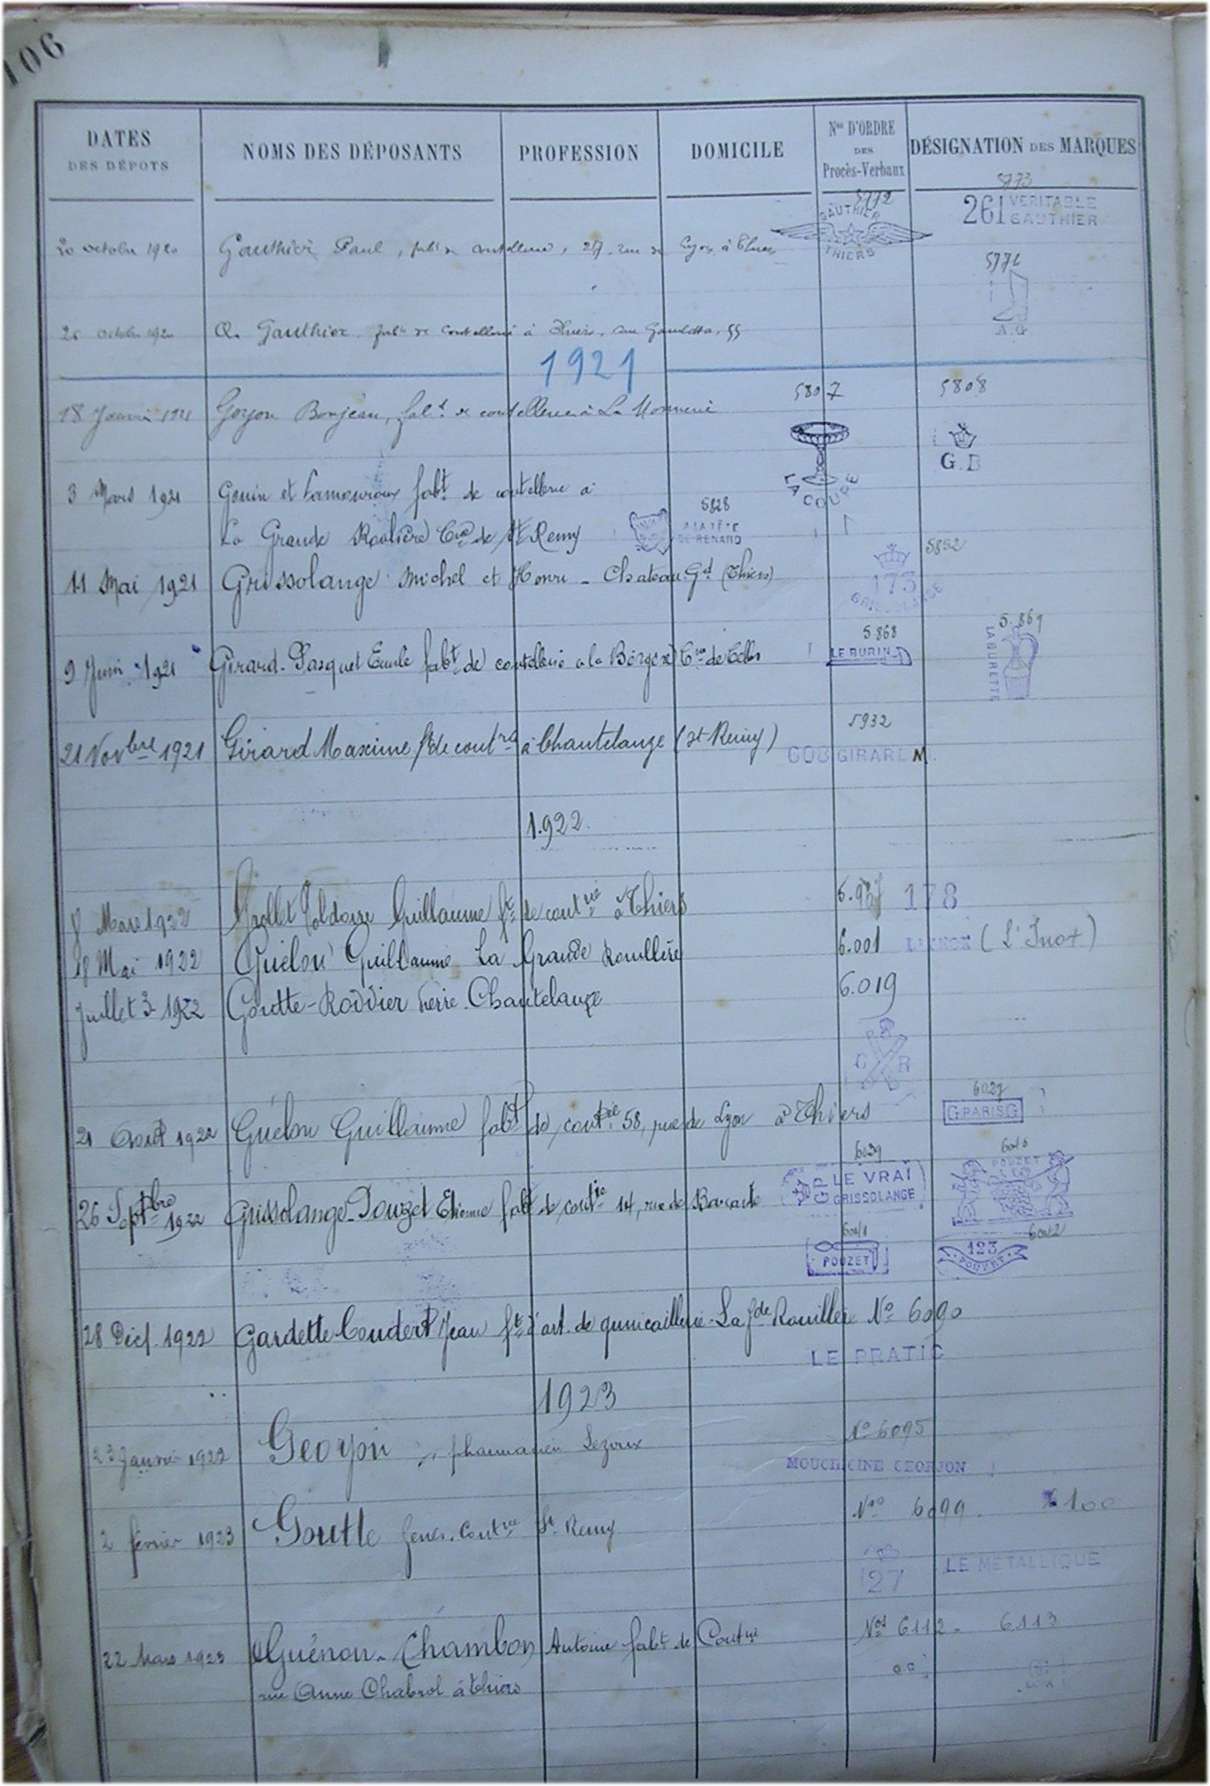 106
DATES DES DÉPOTS
NOMS DES DÉPOSANTS
PROFESSION
DOMICILE
Nos D'ORDRE DES Procès-Verbaux
DÉSIGNATION DES MARQUES
5772 5773
GAUTHIER THIERS
261 VERITABLE GAUTHIER
20 octobre 1920 Gauthier Paul, fabt de coutellerie, 27, rue de Lyon, à Thiers
5774
A.G
octobre 1920 A. Gauthier fabt de coutellerie à Thiers, rue Gambetta, 55
1921
5807 5808
18 Janvier 1921 Goyon Bonjean, fabt de coutellerie à La Monnerie
LA COUPE
G.B
3 Mars 1921 Genin et Lamouroux fabt de coutellerie à
5828
La Grande Rouliere Cne de St Remy
A LA TÊTE DE RENARD
5852
11 Mai 1921 Grissolange Michel et Henri - Chateau Gd (Thiers)
173 GRISSOLANGE
5.868 5.869
9 Juin 1921 Girard-Pasquet Emile fabt de coutellerie à la Cne de Celles
LE BURIN
LA BURETTE
5932
21 Novbre 1921 Girard Maxime ft de coutrie à Chantelauze (St Remy)
603 GIRARD M
1.922
8 Mars 1922 Guillaume ft de coutrie à Thiers 178
18 Mai 1922 Guélon Guillaume La Grande Rouillère 6.001 (L'Inox)
Juillet 3 1922 Goutte-Rodier Pierre Chantelauze 6.019
G R
6027
21 Août 1922 Guélon Guillaume fabt de coutrie 58, rue de Lyon à Thiers
G.PARIS G
6039 6040
26 Septbre 1922 Grissolange-Pouzet Etienne fabt de coutrie 14, rue de
GP LE VRAI GRISSOLANGE
POUZET
6041 6042
POUZET
123 POUZET
28 Déc. 1922 Gardette-Coudert Jean ft d'art. de quincaillerie La Gde Rouillere No 6090
LE PRATIC
1923
Janvier 1922 Georjon pharmacien Lezoux No 6095
GEORJON
2 février 1923 Goutte Genès. Coutrie St Remy Nos 6099 100
27
LE METALLIQUE
22 Mars 1923 Guénon-Chambon Antoine fabt de Coutrie Nos 6112 - 6113
rue Anne Chabrol à Thiers